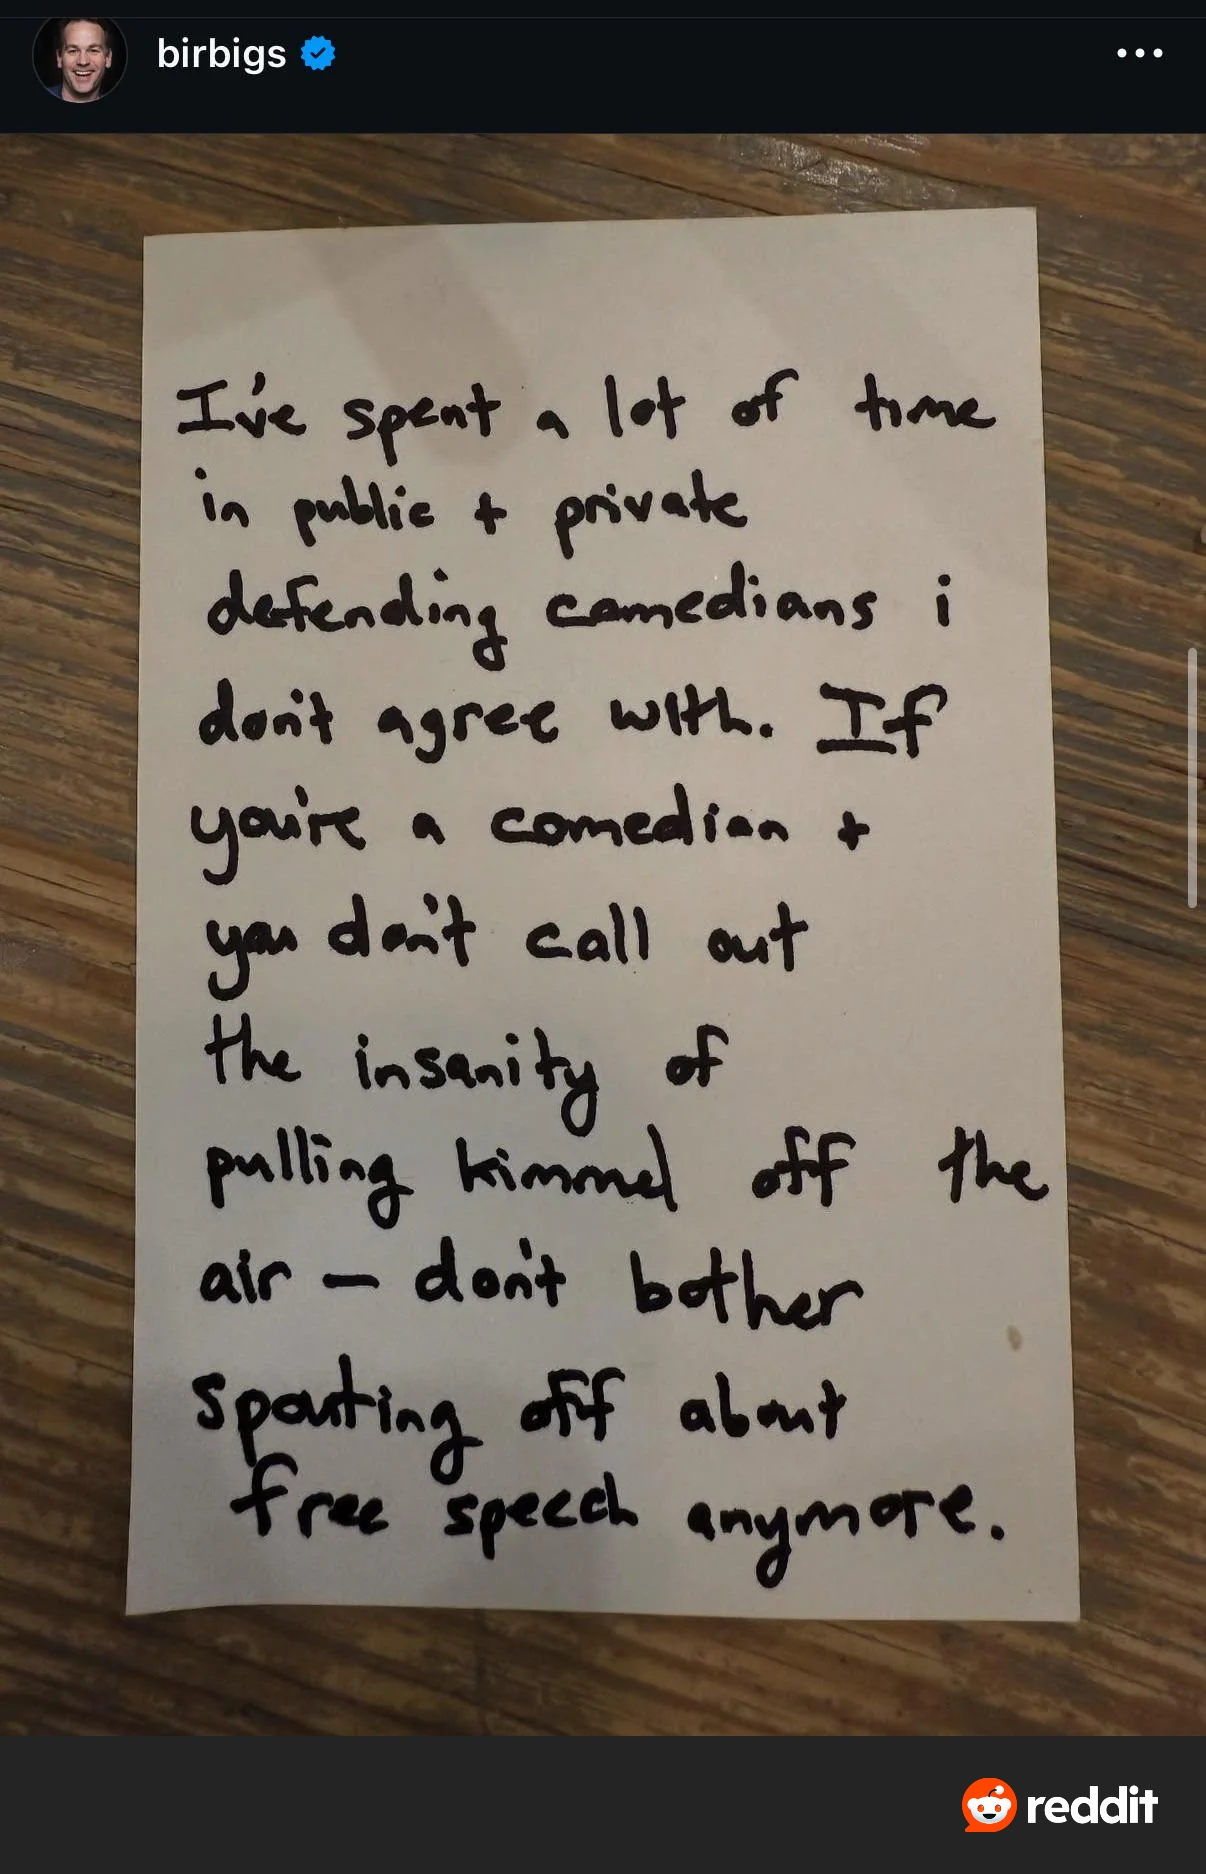 birbigs
I've spent a lot of time
in public + private
defending comedians i
don't agree with. If
you're a comedian +
you don't call out
the insanity of
pulling kimmel off the
air – don't bother
spouting off about
free speech anymore.
reddit